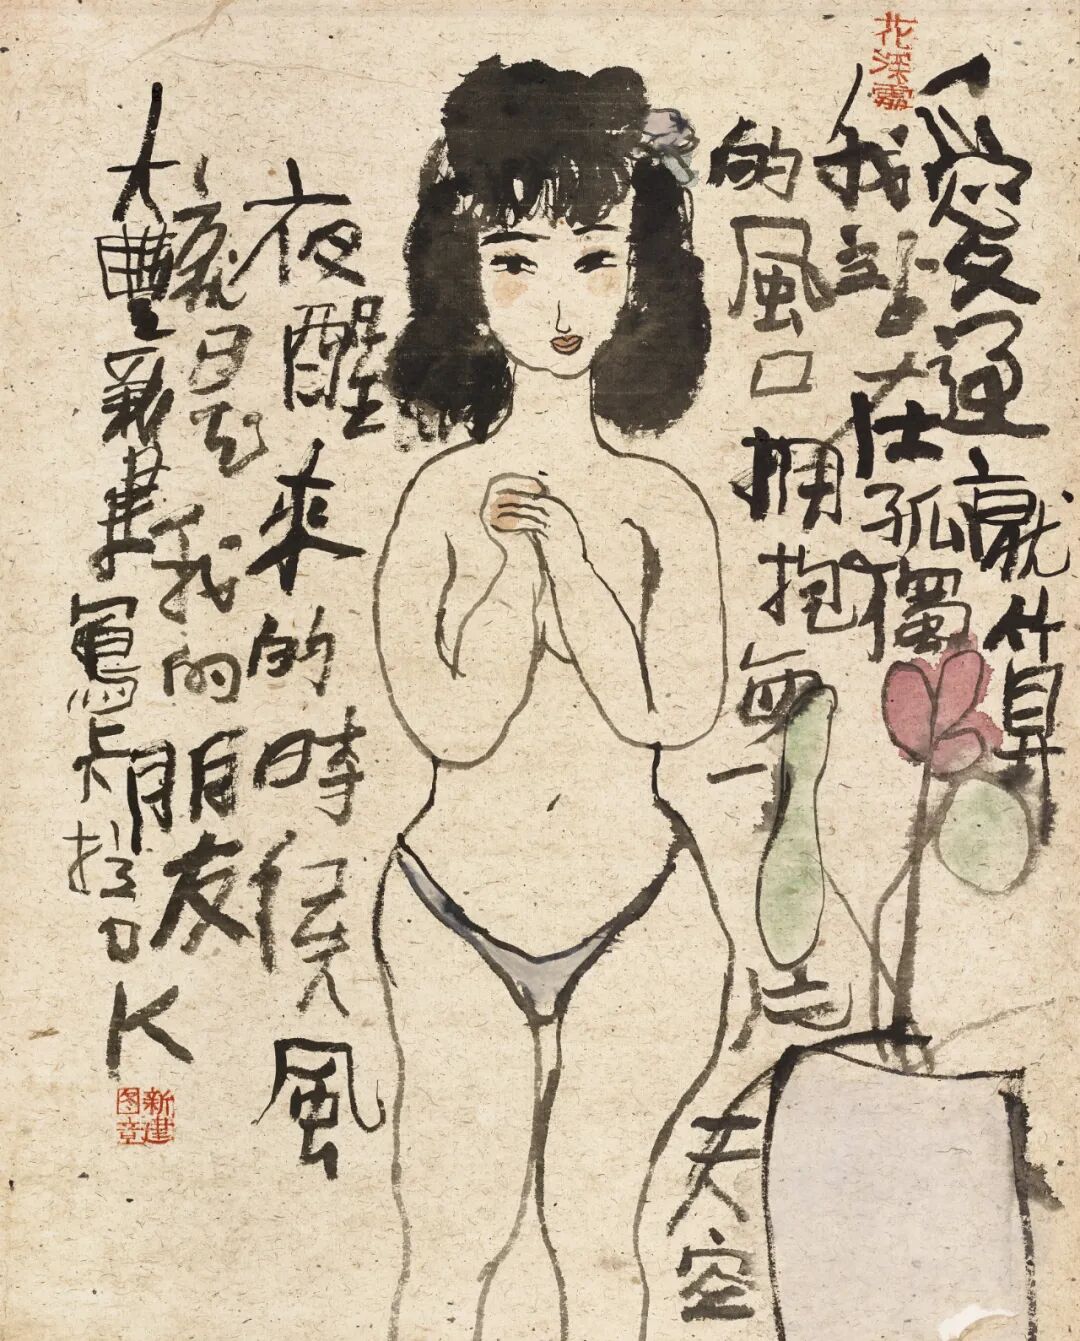 花深霧
愛過就算
我站在孤獨
的風口拥抱
無一片天空
夜醒來的時候風
就是我的朋友
大豐新建寫卡拉OK
新建
图章